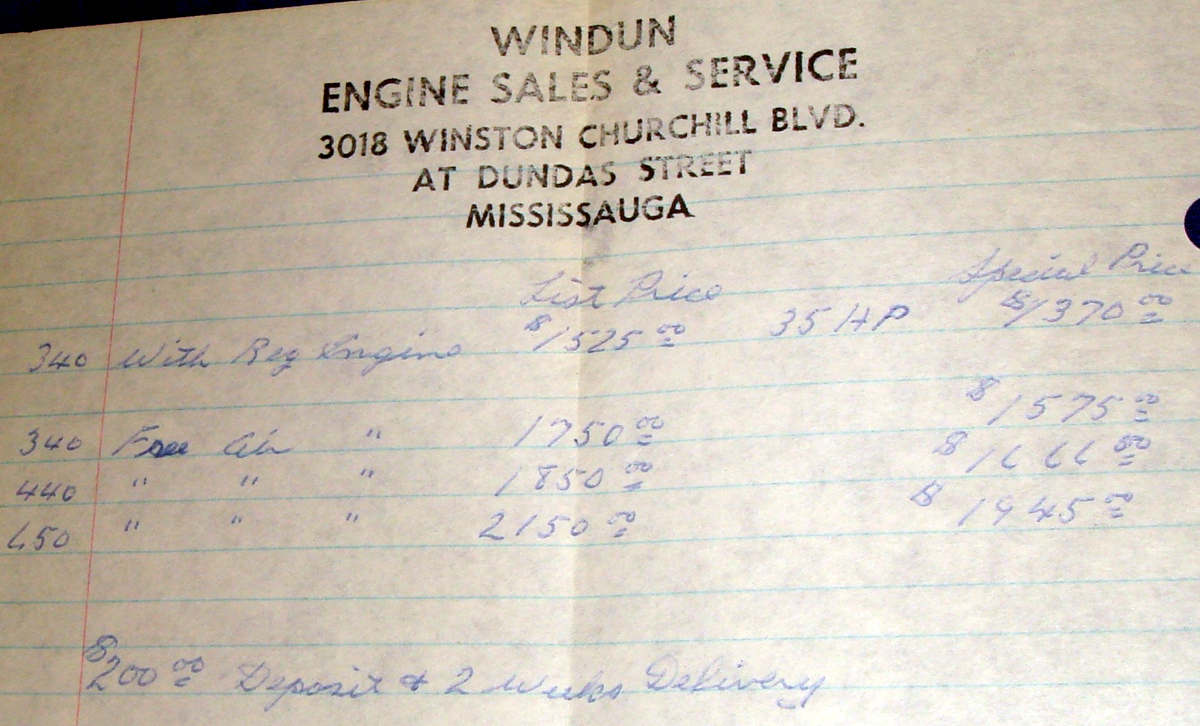 WINDUN
ENGINE SALES & SERVICE
3018 WINSTON CHURCHILL BLVD.
AT DUNDAS STREET
MISSISSAUGA
List Price Special Price
340 With Reg Engine $1525.00 35 HP $1370.00
340 Free Air " 1750.00 $1575.00
440 " " " 1850.00 $1666.00
650 " " " 2150.00 $1945.00
$200.00 Deposit & 2 Weeks Delivery